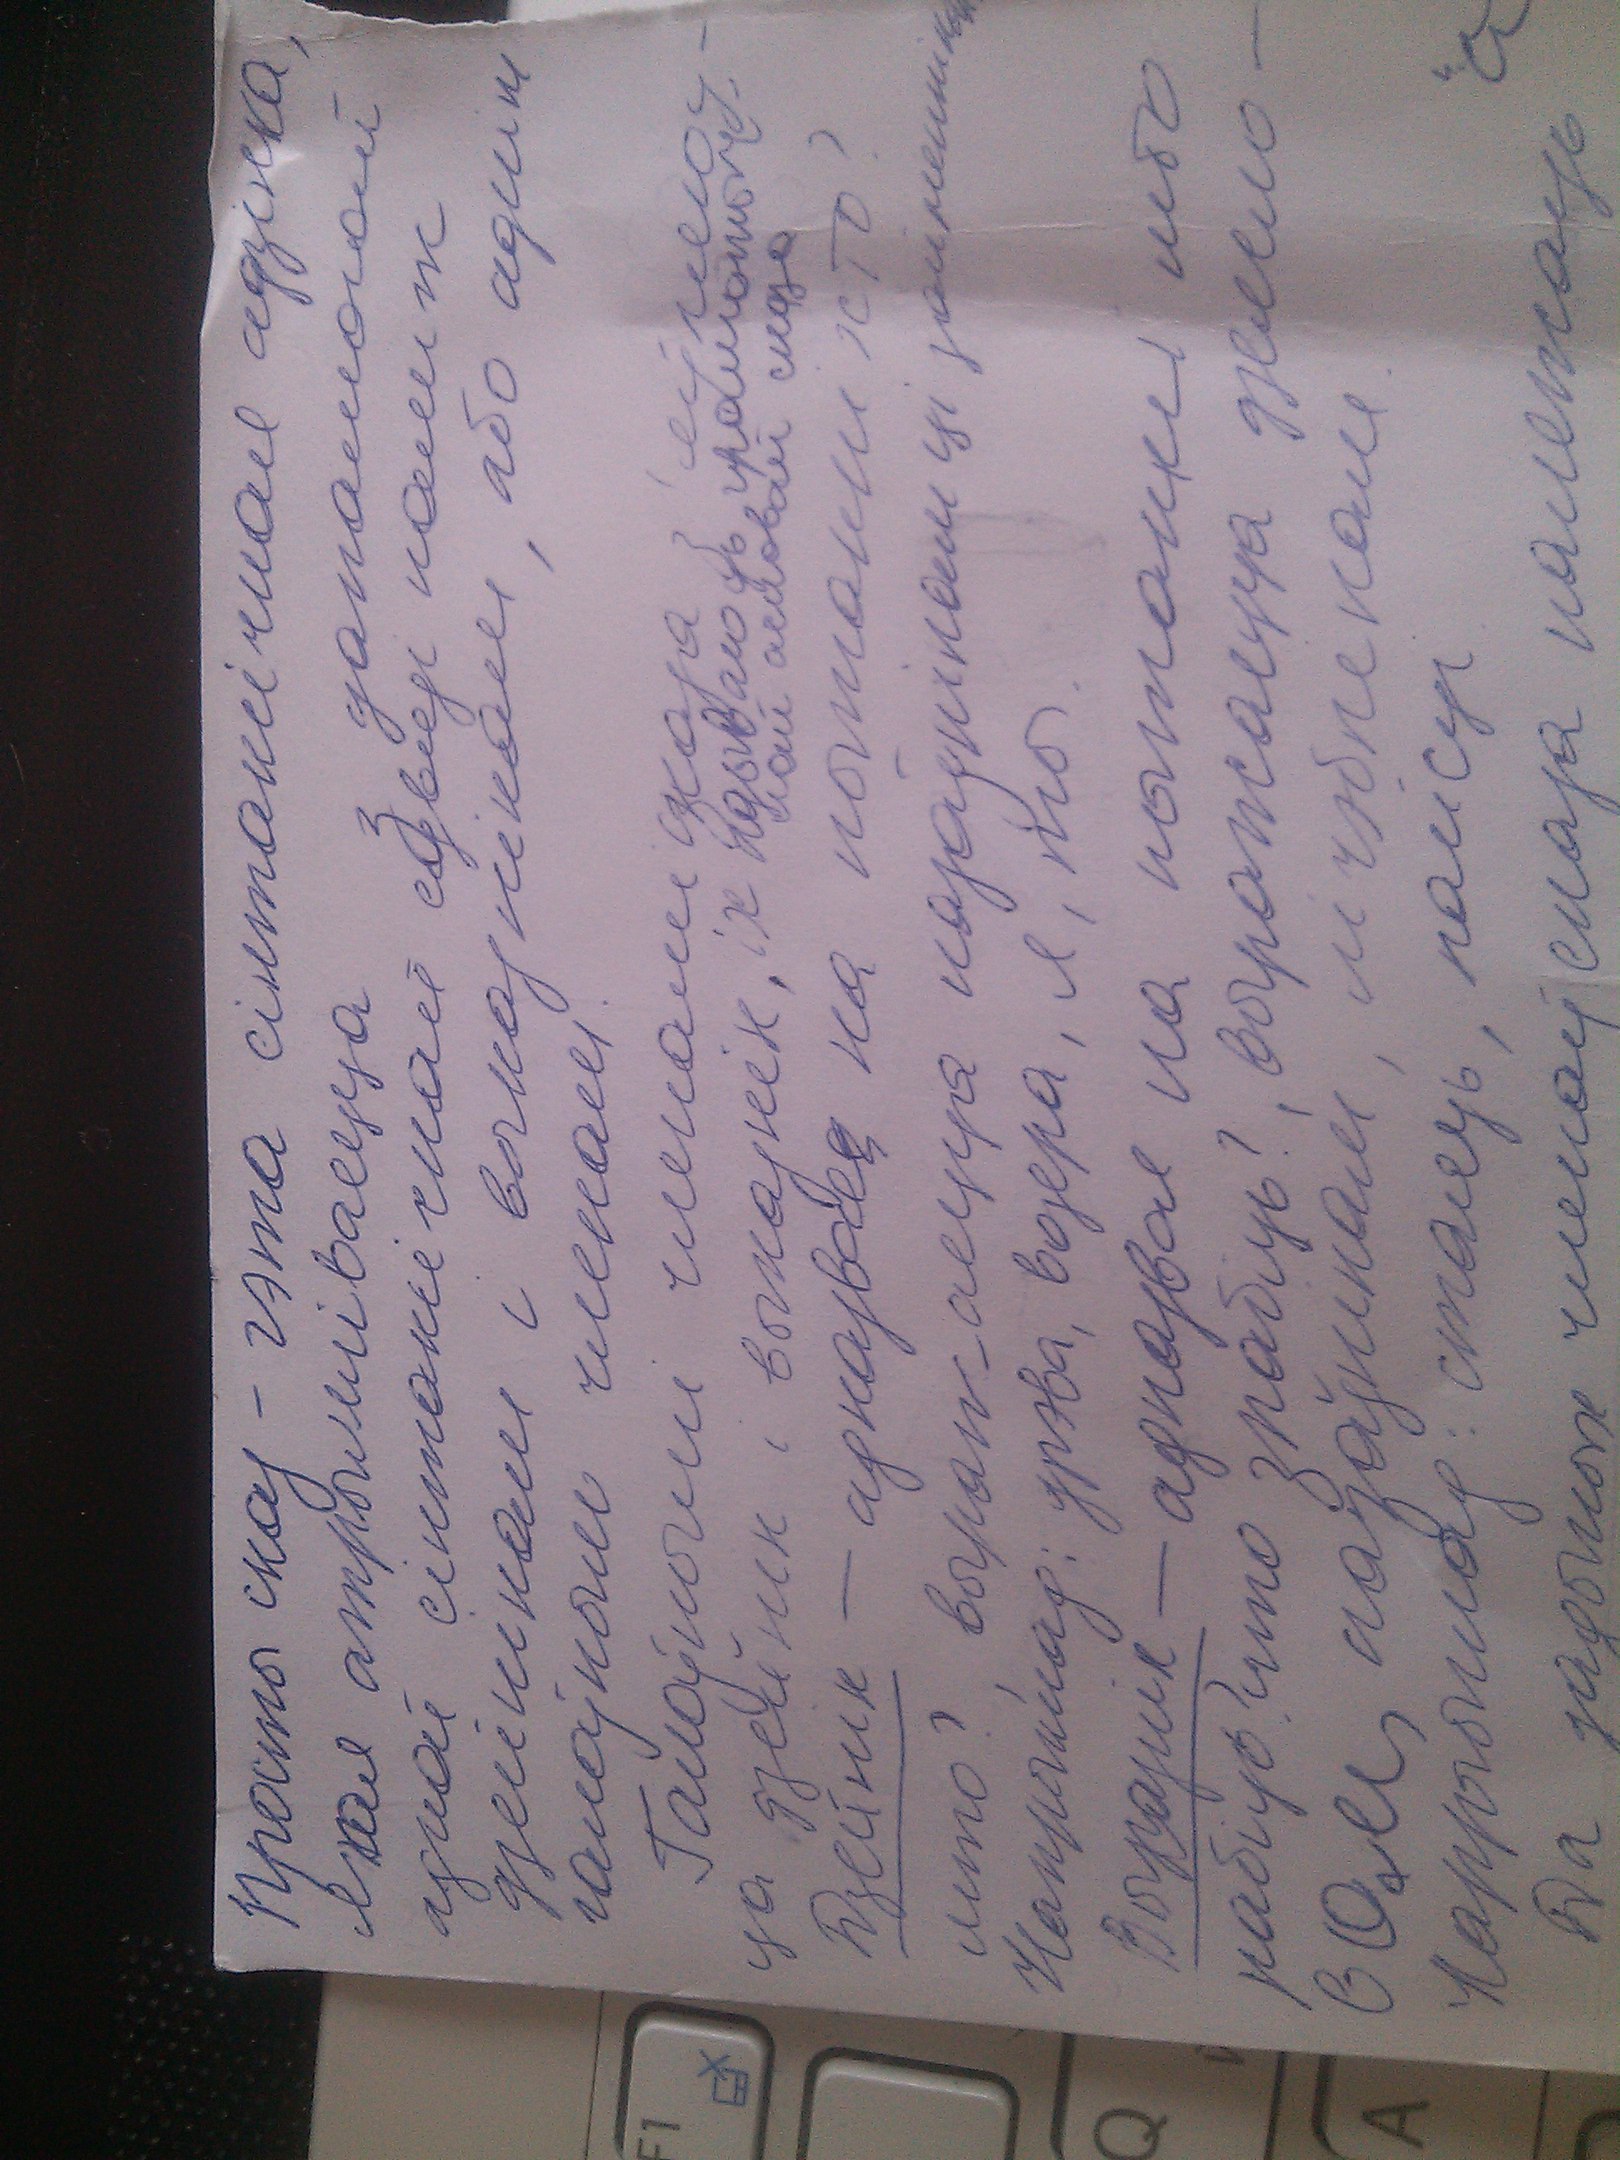 Просты сказ – гэта сінтаксічная адзінка,
якая атрымліваецца з дапамогай
адной сінтаксічнай сувязі паміж
дзейнікам і выказнікам, або адным
галоўным членам.
Галоўнымі членамі сказа з'яўляю-
ца дзейнік і выказнік, іх называюць граматыч-
най асновай сказа
Дзейнік – адказвае на пытанні хто?
што?, выраж-аецца назоўнікам ці займеннікам
Напрыклад: дрэва, возера, я, ты.
Выказнік – адказвае на пытанне што
рабіць? што зрабіць?, выражаецца дзеясло-
вам, назоўнікам, лічэбнікам.
Напрыклад: стаяць, пяюць
Да даданых членаў сказа належаць
F1
Q
A